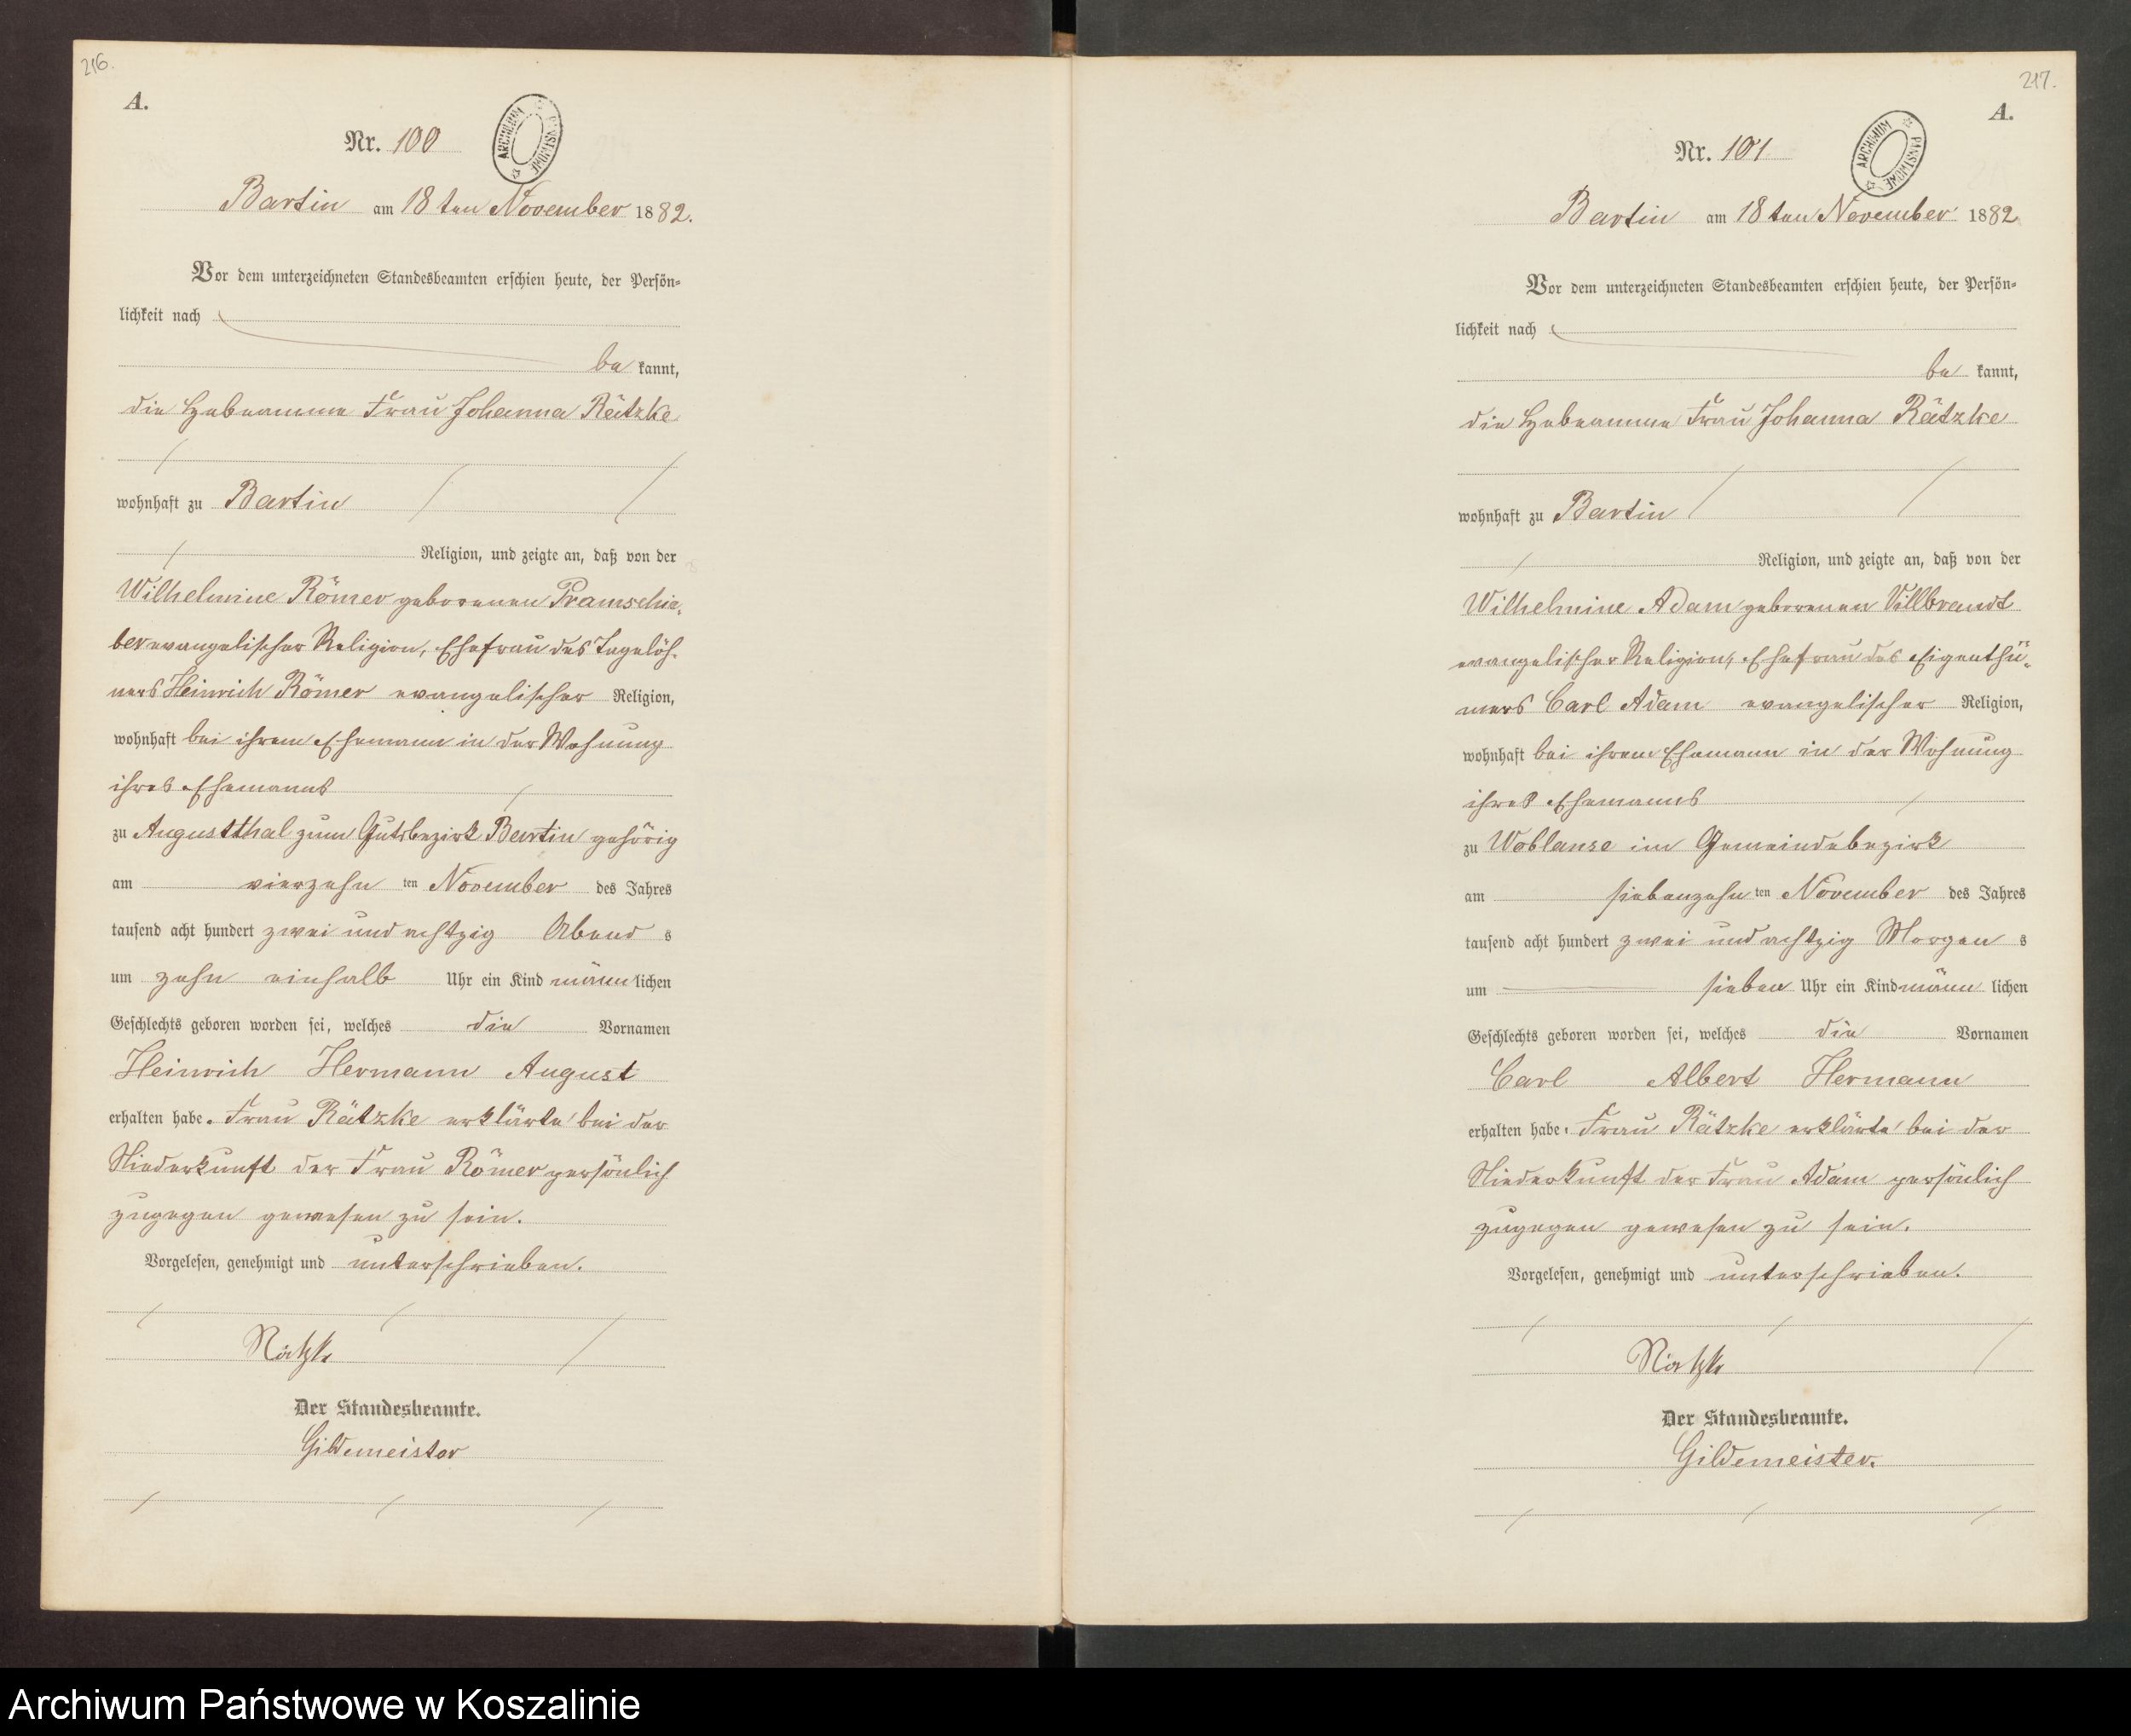 216.
A.
Nr. 100
ARCHIWUM PAŃSTWOWE
Bartin am 18 ten November 1882.
Vor dem unterzeichneten Standesbeamten erschien heute, der Persön-
lichkeit nach
be kannt,
die Hebeamme Frau Johanna Rätzke
wohnhaft zu Bartin
Religion, und zeigte an, daß von der
Wilhelmine Römer geborenen Pramschie-
ber evangelischer Religion, Ehefrau des Tagelöh-
ners Heinrich Römer evangelischer Religion,
wohnhaft bei ihrem Ehemann in der Wohnung
ihres Ehemanns
zu Augustthal zum Gutsbezirk Bartin gehörig
am vierzehn ten November des Jahres
tausend acht hundert zwei und achtzig Abend s
um zehn einhalb Uhr ein Kind männ lichen
Geschlechts geboren worden sei, welches die Vornamen
Heinrich Hermann August
erhalten habe. Frau Rätzke erklärte bei der
Niederkunft der Frau Römer persönlich
zugegen gewesen zu sein.
Vorgelesen, genehmigt und unterschrieben.
Rätzke
Der Standesbeamte.
Gildemeister
217.
A.
Nr. 101
ARCHIWUM PAŃSTWOWE
Bartin am 18 ten November 1882
Vor dem unterzeichneten Standesbeamten erschien heute, der Persön-
lichkeit nach
be kannt,
die Hebeamme Frau Johanna Rätzke
wohnhaft zu Bartin
Religion, und zeigte an, daß von der
Wilhelmine Adam geborenen Villbrandt
evangelischer Religion, Ehefrau des Eigenthü-
mers Carl Adam evangelischer Religion,
wohnhaft bei ihrem Ehemann in der Wohnung
ihres Ehemanns
zu Woblanse im Gemeindebezirk
am siebenzehn ten November des Jahres
tausend acht hundert zwei und achtzig Morgen s
um sieben Uhr ein Kind männ lichen
Geschlechts geboren worden sei, welches die Vornamen
Carl Albert Hermann
erhalten habe. Frau Rätzke erklärte bei der
Niederkunft der Frau Adam persönlich
zugegen gewesen zu sein.
Vorgelesen, genehmigt und unterschrieben.
Rätzke
Der Standesbeamte.
Gildemeister.
Archiwum Państwowe w Koszalinie